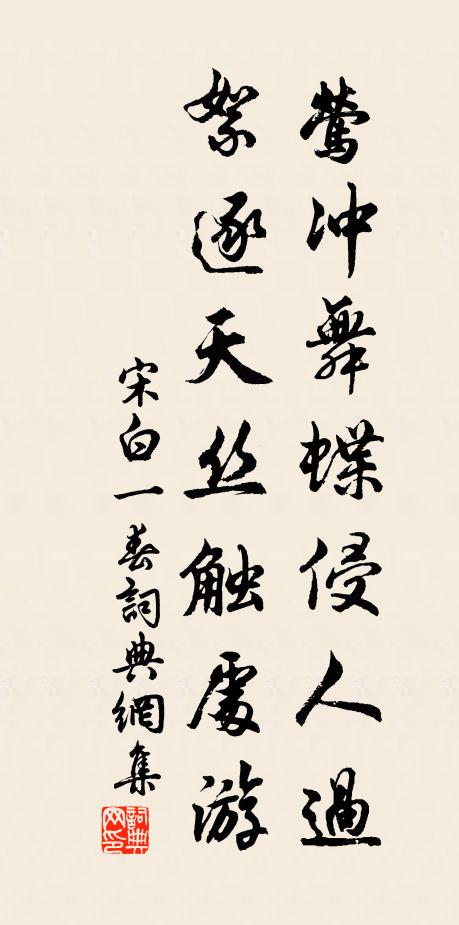 莺冲舞蝶侵人過
絮逐天丝触處游
宋白一春詞典網集
詞典网印